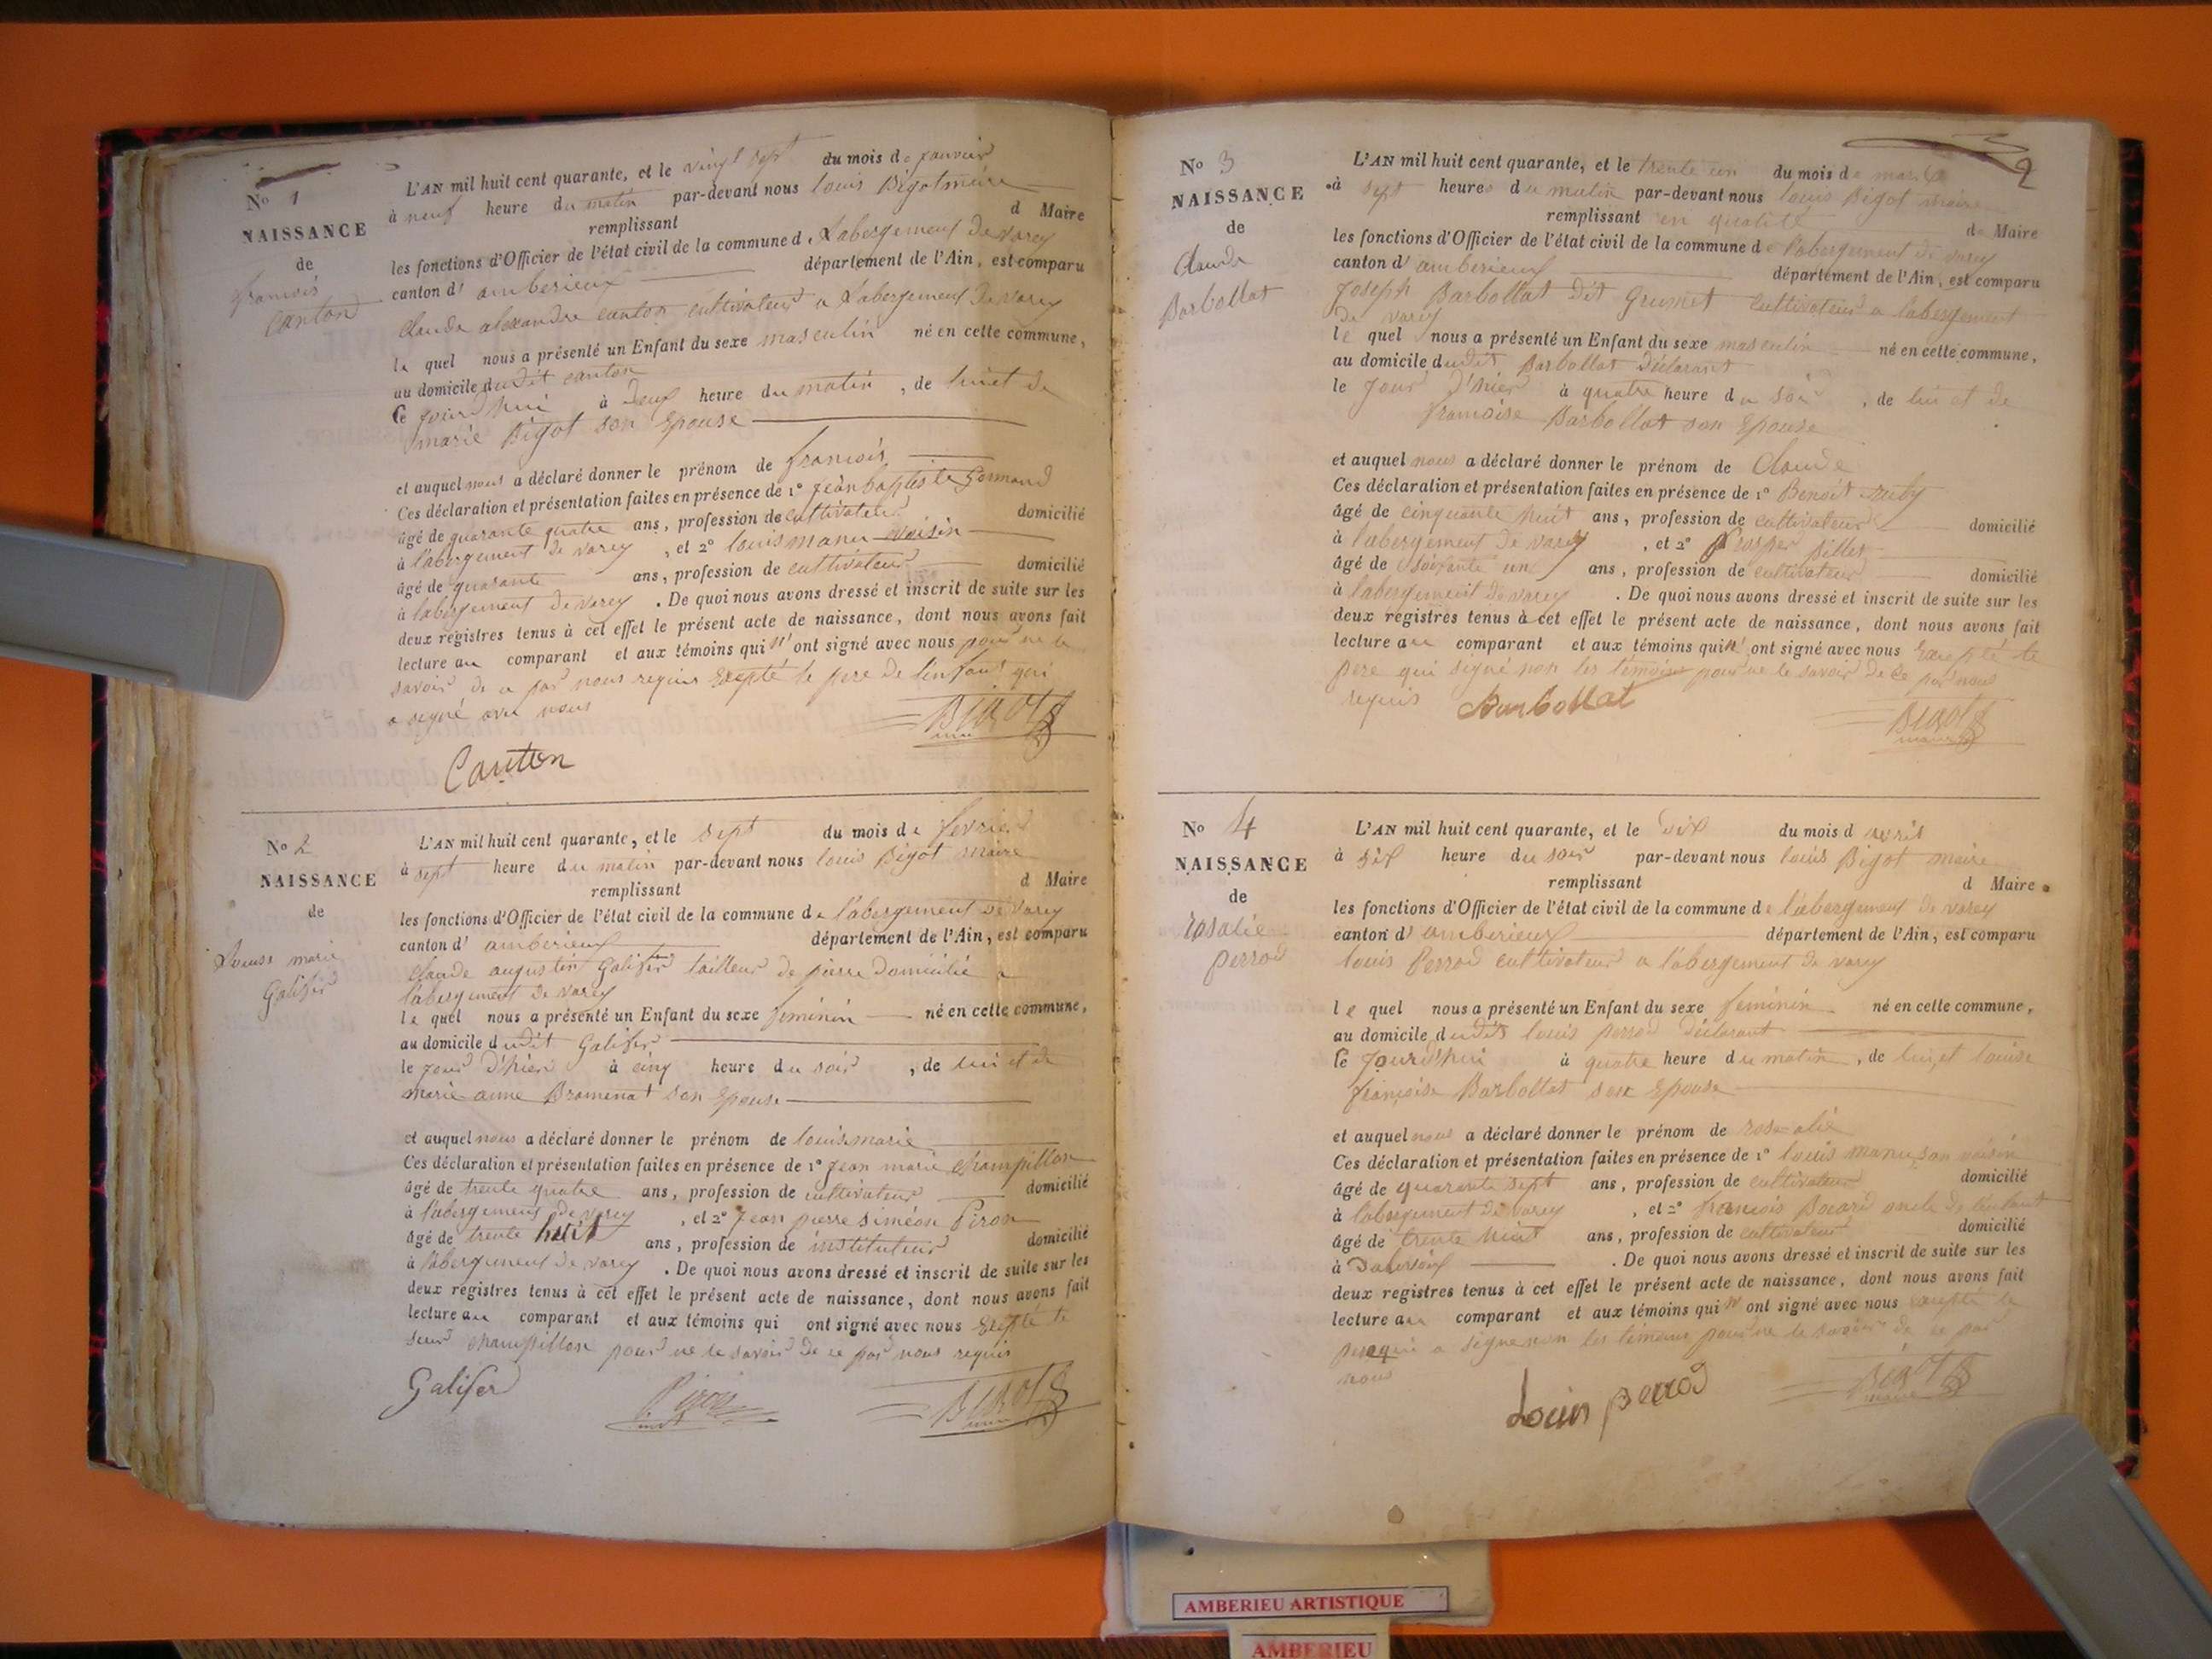 No 1
NAISSANCE
de
francois
Canton
L'AN mil huit cent quarante, et le vingt sept du mois de janvier
à neuf heure du matin par-devant nous louis Bigot maire
remplissant d Maire
les fonctions d'Officier de l'état civil de la commune de Labergement De varey
canton d' amberieux département de l'Ain, est comparu
Claude alexandre canton cultivateur a Labergement De varey
le quel nous a présenté un Enfant du sexe masculin né en cette commune,
au domicile dudit canton
Ce jourd'hui à deux heure du matin, de lui et de
marie Bigot son Epouse
et auquel nous a déclaré donner le prénom de francois
Ces déclaration et présentation faites en présence de 1° jean baptiste Gormand
âgé de quarante quatre ans, profession de cultivateur domicilié
à l'abergement de varey, et 2° louis manu voisin
âgé de quarante ans, profession de cultivateur domicilié
à labergement de varey. De quoi nous avons dressé et inscrit de suite sur les
deux régistres tenus à cet effet le présent acte de naissance, dont nous avons fait
lecture au comparant et aux témoins qui n'ont signé avec nous pour ne le
savoir de ce par nous requis Excepté le pere de l'enfant qui
a signé avec nous
Bigot
Canton
No 2
NAISSANCE
de
Louise marie
Galifer
L'AN mil huit cent quarante, et le sept du mois de fevrier
à sept heure du matin par-devant nous louis Bigot maire
remplissant d Maire
les fonctions d'Officier de l'état civil de la commune de l'abergement De Varey
canton d' amberieux département de l'Ain, est comparu
Claude augustin Galifer tailleur de pierre domicilié a
l'abergement de varey
le quel nous a présenté un Enfant du sexe feminin né en cette commune,
au domicile dudit Galifer
le jour D'hier à cinq heure du soir, de lui et de
marie anne Bramenat son Epouse
et auquel nous a déclaré donner le prénom de louise marie
Ces déclaration et présentation faites en présence de 1° jean marie champillon
âgé de trente quatre ans, profession de cultivateur domicilié
à l'abergement de varey, et 2° Jean pierre siméon Piron
âgé de trente huit ans, profession de instituteur domicilié
à l'abergement de varey. De quoi nous avons dressé et inscrit de suite sur les
deux régistres tenus à cet effet le présent acte de naissance, dont nous avons fait
lecture au comparant et aux témoins qui ont signé avec nous Excepté le
sieur champillon pour ne le savoir de ce par nous requis
Galifer Piron Bigot
2
No 3
NAISSANCE
de
Claude
Barbollat
L'AN mil huit cent quarante, et le trente un du mois de mars
à sept heures du matin par-devant nous louis Bigot maire
remplissant en qualité de Maire
les fonctions d'Officier de l'état civil de la commune de l'abergement de varey
canton d' amberieux département de l'Ain, est comparu
Joseph Barbollat Dit Grumet cultivateur a labergement
de varey
le quel nous a présenté un Enfant du sexe masculin né en cette commune,
au domicile dudit Barbollat Déclarant
le jour D'hier à quatre heure du soir, de lui et de
francoise Barbollat son Epouse
et auquel nous a déclaré donner le prénom de Claude
Ces déclaration et présentation faites en présence de 1° Benoît ruby
âgé de cinquante huit ans, profession de cultivateur domicilié
à l'abergement de varey, et 2° Prosper pillet
âgé de soixante un ans, profession de cultivateur domicilié
à l'abergement de varey. De quoi nous avons dressé et inscrit de suite sur les
deux régistres tenus à cet effet le présent acte de naissance, dont nous avons fait
lecture au comparant et aux témoins qui n'ont signé avec nous Excepté le
pere qui signé non les témoins pour ne le savoir de ce par nous
requis Barbollat
Bigot
No 4
NAISSANCE
de
rosalie
perrod
L'AN mil huit cent quarante, et le dix du mois d avril
à six heure du soir par-devant nous louis Bigot maire
remplissant d Maire
les fonctions d'Officier de l'état civil de la commune de l'abergement de varey
canton d' amberieux département de l'Ain, est comparu
louis Perrod cultivateur a l'abergement de varey
le quel nous a présenté un Enfant du sexe feminin né en cette commune,
au domicile dudit louis perrod déclarant
Ce Jourd'hui à quatre heure du matin, de lui, et louise
françoise Barbollat son Epouse
et auquel nous a déclaré donner le prénom de rosalie
Ces déclaration et présentation faites en présence de 1° louis manu son voisin
âgé de quarante sept ans, profession de cultivateur domicilié
à l'abergement de varey, et 2° francois Bocard oncle de l'enfant
âgé de trente huit ans, profession de cultivateur domicilié
à. De quoi nous avons dressé et inscrit de suite sur les
deux régistres tenus à cet effet le présent acte de naissance, dont nous avons fait
lecture au comparant et aux témoins qui n'ont signé avec nous excepté le
pere qui a signé non les témoins pour ne le savoir de ce par
nous
Louis perrod Bigot
AMBERIEU ARTISTIQUE
AMBERIEU